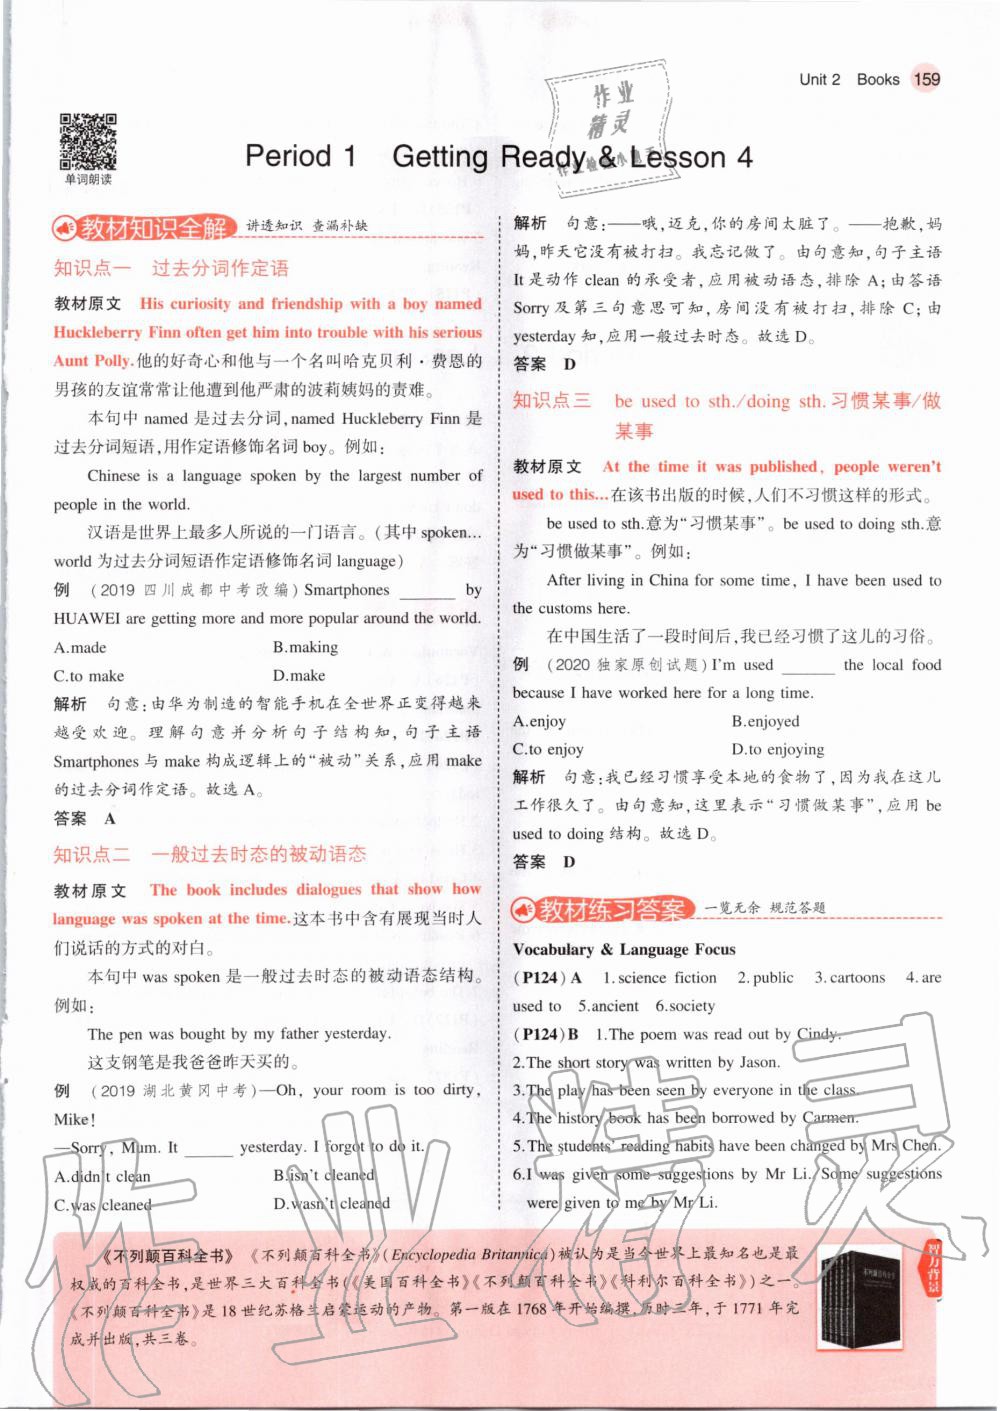 Unit 2 Books 159
单词朗读
作业
精灵
作业检查小助手
Period 1 Getting Ready & Lesson 4
教材知识全解 讲透知识 查漏补缺
知识点一 过去分词作定语
教材原文 His curiosity and friendship with a boy named
Huckleberry Finn often get him into trouble with his serious
Aunt Polly.他的好奇心和他与一个名叫哈克贝利·费恩的
男孩的友谊常常让他遭到他严肃的波莉姨妈的责难。
本句中 named 是过去分词,named Huckleberry Finn 是
过去分词短语,用作定语修饰名词 boy。例如:
Chinese is a language spoken by the largest number of
people in the world.
汉语是世界上最多人所说的一门语言。(其中 spoken...
world 为过去分词短语作定语修饰名词 language)
例 (2019 四川成都中考改编)Smartphones ______ by
HUAWEI are getting more and more popular around the world.
A.made B.making
C.to make D.make
解析 句意:由华为制造的智能手机在全世界正变得越来
越受欢迎。理解句意并分析句子结构知,句子主语
Smartphones 与 make 构成逻辑上的“被动”关系,应用 make
的过去分词作定语。故选 A。
答案 A
知识点二 一般过去时态的被动语态
教材原文 The book includes dialogues that show how
language was spoken at the time.这本书中含有展现当时人
们说话的方式的对白。
本句中 was spoken 是一般过去时态的被动语态结构。
例如:
The pen was bought by my father yesterday.
这支钢笔是我爸爸昨天买的。
例 (2019 湖北黄冈中考)—Oh, your room is too dirty,
Mike!
—Sorry, Mum. It ______ yesterday. I forgot to do it.
A.didn't clean B.isn't cleaned
C.was cleaned D.wasn't cleaned
解析 句意:——哦,迈克,你的房间太脏了。——抱歉,妈
妈,昨天它没有被打扫。我忘记做了。由句意知,句子主语
It 是动作 clean 的承受者,应用被动语态,排除 A;由答语
Sorry 及第三句意思可知,房间没有被打扫,排除 C;由
yesterday 知,应用一般过去时态。故选 D。
答案 D
知识点三 be used to sth./doing sth.习惯某事/做
某事
教材原文 At the time it was published, people weren't
used to this...在该书出版的时候,人们不习惯这样的形式。
be used to sth.意为“习惯某事”。be used to doing sth.意
为“习惯做某事”。例如:
After living in China for some time, I have been used to
the customs here.
在中国生活了一段时间后,我已经习惯了这儿的习俗。
例 (2020 独家原创试题)I'm used ______ the local food
because I have worked here for a long time.
A.enjoy B.enjoyed
C.to enjoy D.to enjoying
解析 句意:我已经习惯享受本地的食物了,因为我在这儿
工作很久了。由句意知,这里表示“习惯做某事”,应用 be
used to doing 结构。故选 D。
答案 D
教材练习答案 一览无余 规范答题
Vocabulary & Language Focus
(P124) A 1.science fiction 2.public 3.cartoons 4.are
used to 5.ancient 6.society
(P124) B 1.The poem was read out by Cindy.
2.The short story was written by Jason.
3.The play has been seen by everyone in the class.
4.The history book has been borrowed by Carmen.
5.The students' reading habits have been changed by Mrs Chen.
6.I was given some suggestions by Mr Li./Some suggestions
were given to me by Mr Li.
作业精灵
《不列颠百科全书》 《不列颠百科全书》(Encyclopedia Britannica)被认为是当今世界上最知名也是最
权威的百科全书,是世界三大百科全书(《美国百科全书》《不列颠百科全书》《科利尔百科全书》)之一。
《不列颠百科全书》是 18 世纪苏格兰启蒙运动的产物。第一版在 1768 年开始编撰,历时三年,于 1771 年完
成并出版,共三卷。
不列颠百科全书
智力背景